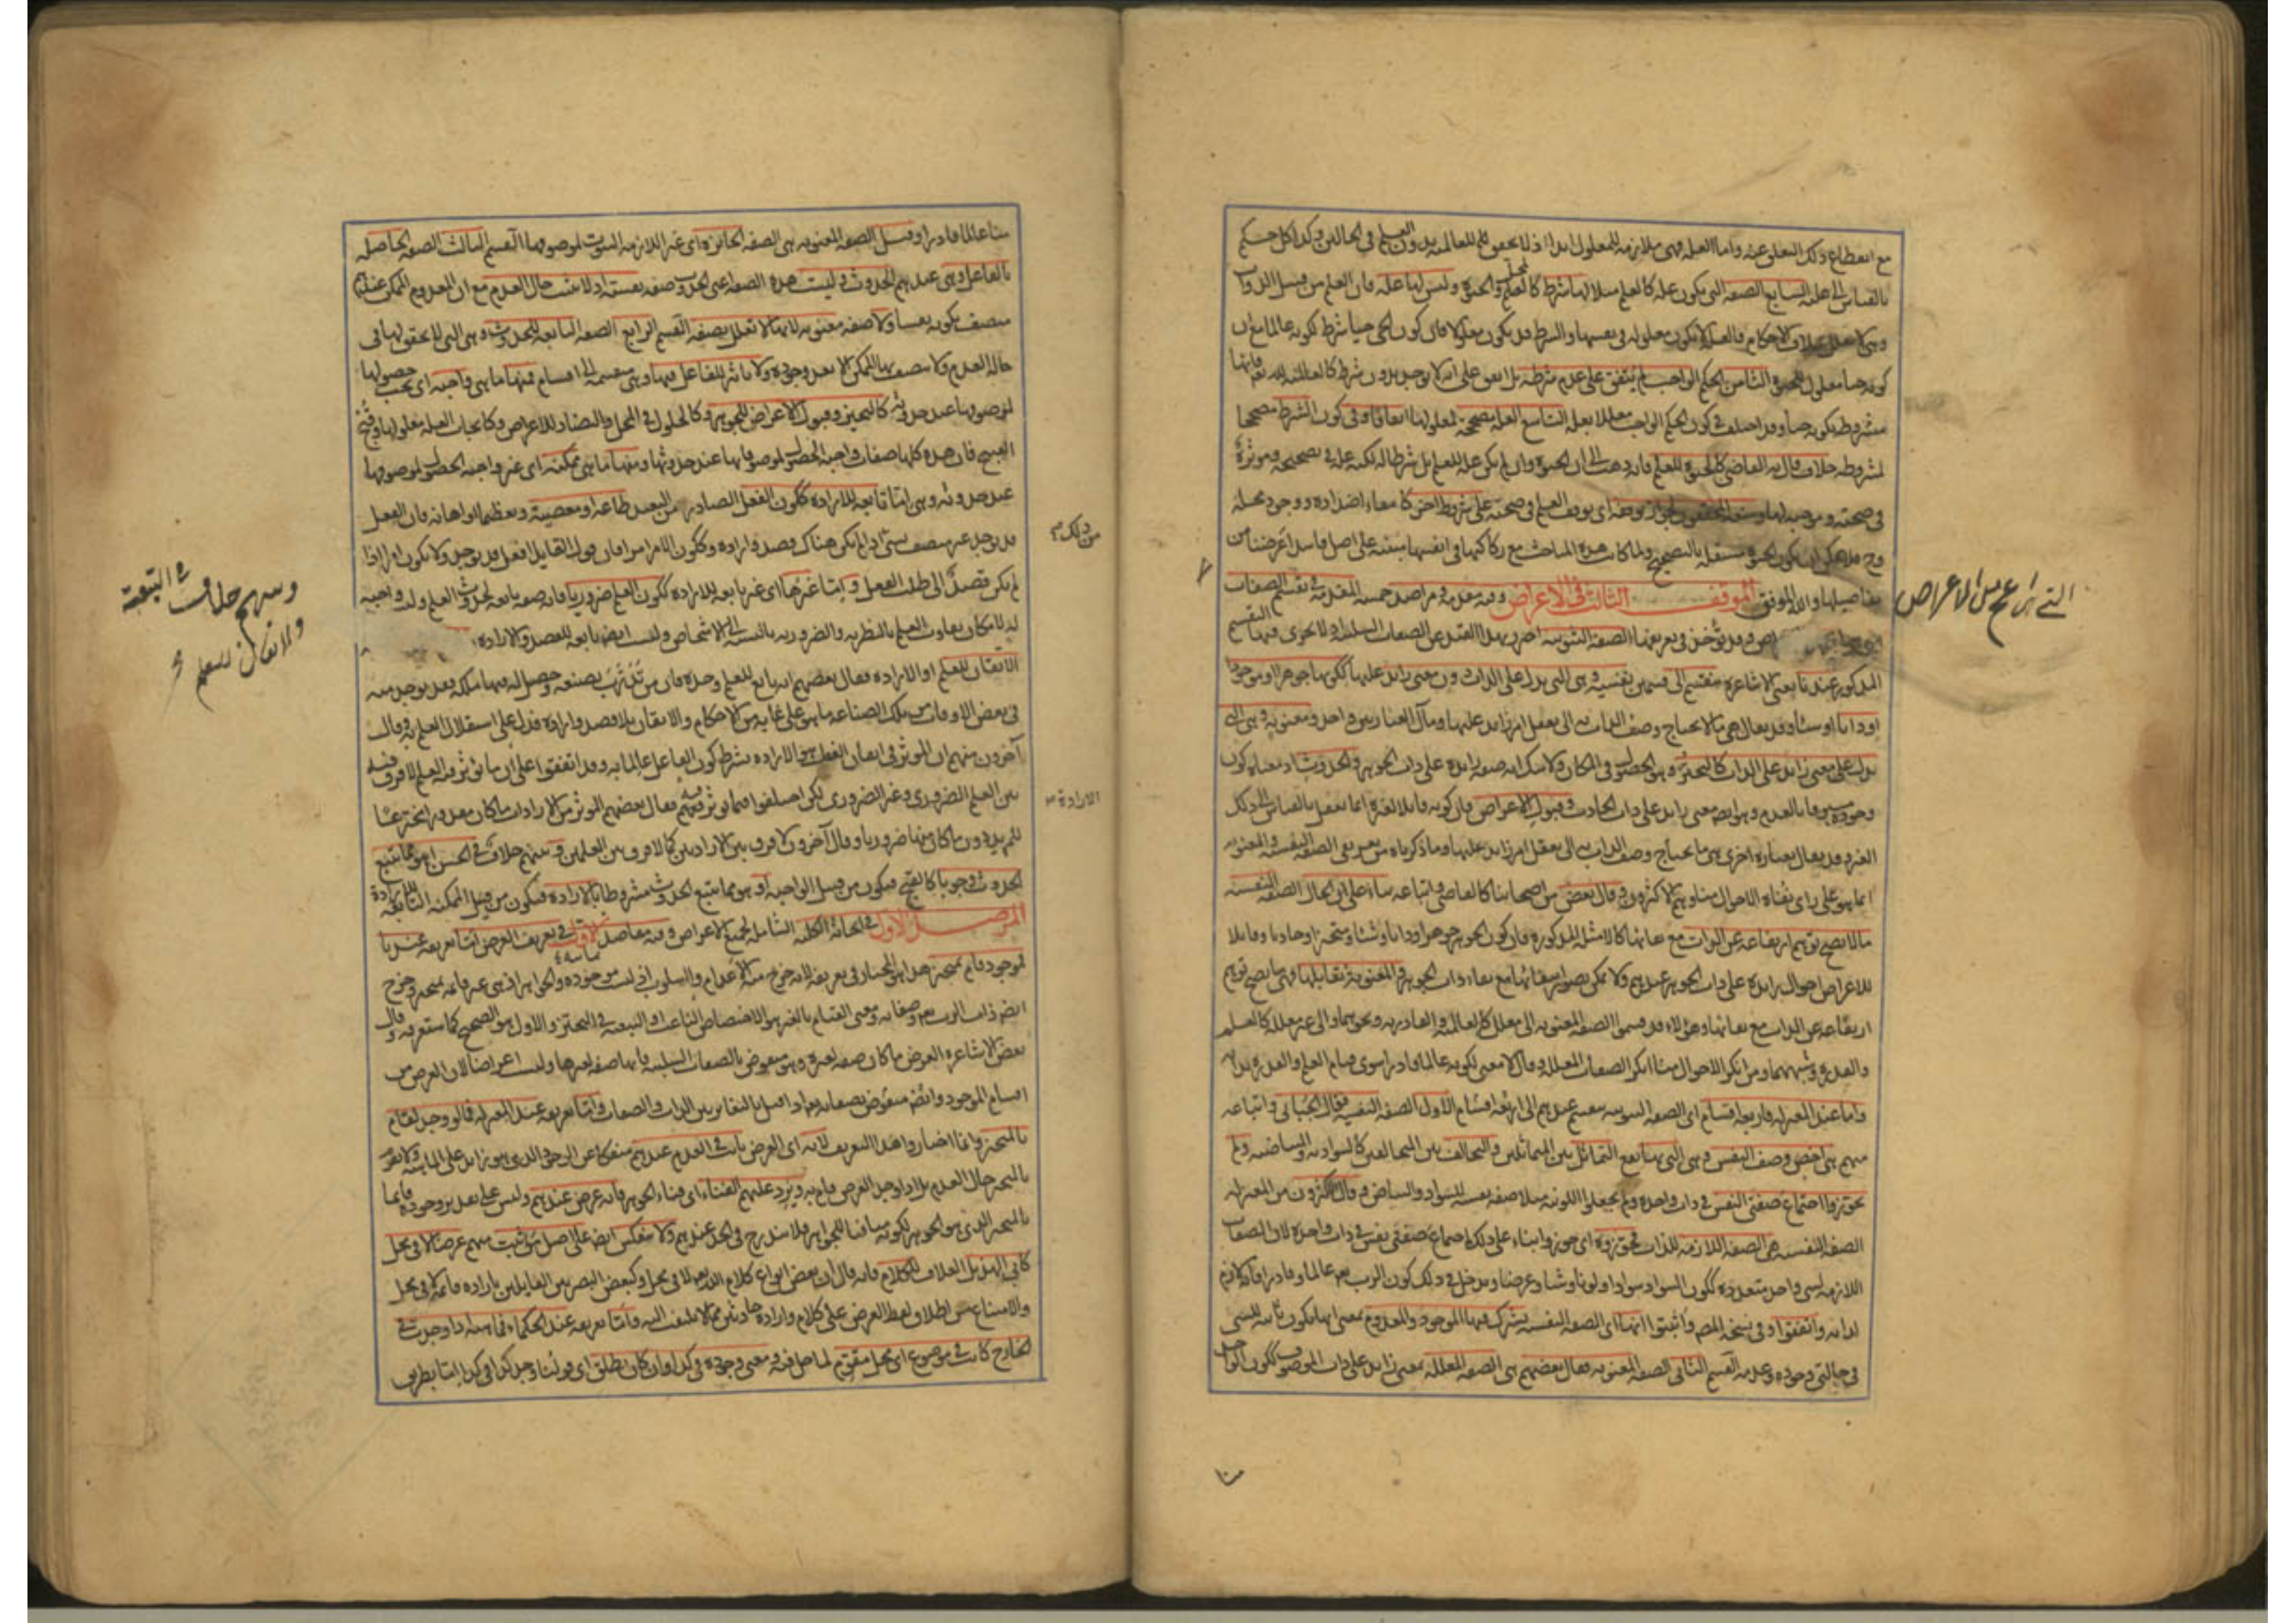 مع انقطاع ذلك التعلق عنه واما العلة فهي ملازمة للمعلول ابدا اذ لا تحقق للعالمية بدون العلم في الحالين وكذا كل حكم
بالقياس الى علته السابع الصفة التي يكون علة كالعلم مثلا لها شرط كالمحل والحيوة وليس لها علة فان العلم من قبيل الذوات
وهي لا تعلل بخلاف الاحكام فالعلة لا تكون معلولة في نفسها والشرط قد يكون معلولا فان كون الحي حيا شرط لكونه عالما مع ان
كونه حيا معلول للحيوة الثامن الحكم الواجب لم يتفق على عدم شرطه بل اتفق على انه لا يوجد بدون شرط كالعالمية لله تع فانها
مشروطة بكونه حيا وقد اختلف في كون الحكم الواجب معللا بعلة التاسع العلة مصححة لمعلولها اتفاقا وفي كون الشرط مصححا
لمشروطه خلاف قال به القاضي كالحيوة للعلم فانه ذهب الى ان الحيوة وان لم يكن علة للعلم بل شرطا له لكنه علة في تصحيحه ومؤثرة
في صحته وموجبة لها ومنعه المحققون لجواز توقفه اي توقف العلم في صحته على شروط اخر كانتفاء اضداده ووجود محله
وح فلا يمكن ان يكون الحيوة مستقلة بالتصحيح ولما كانت هذه المباحث مع ركاكتها في انفسها مبتنية على اصل فاسد اعرضنا عن
تفاصيلها والله الموفق الموقف الثالث في الاعراض وفيه مقدمة ومراصد خمسة المقدمة في تقسيم الصفات
التي هي اعم من الاعراض
وقد يؤخذ في تعريفها الصفة الثبوتية احترز بهذا القيد عن الصفات السلبية اذ لا يجري فيها التقسيم
المذكور عند نا يعني الاشاعرة تنقسم الى قسمين نفسية وهي التي تدل على الذات دون معنى زائد عليها ككونها جوهرا او موجودا
او ذاتا او شيئا وقد يقال هي ما لا يحتاج وصف الذات به الى تعقل امر زائد عليها ومآل العبارتين واحد ومعنوية وهي التي
تدل على معنى زائد على الذات كالتحيز وهو الحصول في المكان ولا شك انه صفة زائدة على ذات الجوهر والحدوث اذ معناه كون
وجوده مسبوقا بالعدم وهو ايضا معنى زائد على ذات الحادث وقبول الاعراض فان كونه قابلا لغيره انما يعقل بالقياس الى ذلك
الغير وقد يقال بعبارة اخرى هي ما يحتاج وصف الذات به الى تعقل امر زائد عليها وما ذكرناه من تعريفي الصفة النفسية والمعنوية
انما هو على راي نفاة الاحوال منا وهم الاكثرون وقال بعض من اصحابنا كالقاضي واتباعه بناء على ان الحال الصفة النفسية
ما لا يصح توهم ارتفاعه عن الذات مع بقائها كالامثلة المذكورة فان كون الجوهر جوهرا وذاتا وشيئا ومتحيزا وحادثا وقابلا
للاعراض احوال زائدة على ذات الجوهر عندهم ولا يمكن تصور انتفائها مع بقاء ذات الجوهر والمعنوية تقابلها فهي ما يصح توهم
ارتفاعه عن الذات مع بقائها وهؤلاء قد قسموا الصفة المعنوية الى معللة كالعالمية والقادرية ونحوهما والى غير معللة كالعلم
والقدرة وشبههما ومن انكر الاحوال منا انكر الصفات المعللة وقال لا معنى لكونه عالما وقادرا سوى قيام العلم والقدرة بذاته
واما عند المعتزلة فاربعة اقسام اي الصفة الثبوتية تنقسم عندهم الى اربعة اقسام الاول الصفة النفسية فقال الجبائي واتباعه
منهم هي اخص وصف النفس وهي التي بها يقع التماثل بين المتماثلين والتخالف بين المتخالفين كالسوادية والبياضية ولم
يجوزوا اجتماع صفتي النفس في ذات واحدة ولم يجعلوا اللونية مثلا صفة نفسية للسواد والبياض وقال الاكثرون من المعتزلة
الصفة النفسية هي الصفة اللازمة للذات فجوزوه اي جوزوا بناء على ذلك اجتماع صفتي نفس في ذات واحدة لان الصفات
اللازمة لشيء واحد متعددة ككون السواد سوادا ولونا وشيئا وعرضا ويدخل في ذلك كون الرب تع عالما وقادرا فانه لازم
لذاته واتفقوا وفي نسخة المص واثبتوا انها اي الصفة النفسية يشترك فيها الموجود والمعدوم بمعنى انها يكون ثابتة للشيء
في حالتي وجوده وعدمه القسم الثاني الصفة المعنوية فقال بعضهم هي الصفة المعللة بمعنى زائد على ذات الموصوف ككون الواحد
منا عالما قادرا وقيل الصفة المعنوية هي الصفة الجائزة اي غير اللازمة الثبوت لموصوفها القسم الثالث الصفة الحاصلة
بالفاعل وهي عندهم الحدوث وليست هذه الصفة اعني الحدوث صفة نفسية اذ لا يثبت حال العدم مع ان المعدوم الممكن عندهم
متصف بكونه نفسا ولا صفة معنوية لانها لا تعلل بصفة القسم الرابع الصفة التابعة للحدوث وهي التي لا تحقق لها في
حالة العدم ولا يتصف بها الممكن الا بعد وجوده ولا تاثير للفاعل فيها وهي منقسمة الى اقسام فمنها ما هي واجبة اي يجب حصولها
لموصوفها عند حدوثه كالتحيز وقبول الاعراض للجوهر وكالحلول في المحل والتضاد للاعراض وكايجاب العلة معلولها وقبح
القبيح فان هذه كلها صفات واجبة الحصول لموصوفاتها عند حدوثها ومنها ما هي ممكنة اي غير واجبة الحصول لموصوفها
عند حدوثه وهي اما تابعة للارادة ككون الفعل الصادر من العبد طاعة او معصية وتعظيما او اهانة فان الفعل
قد يوجد غير متصف بشيء
من ذلك
اذا لم يكن هناك قصد وارادة وككون الامر امرا فان قول القائل افعل قد يوجد ولا يكون امرا اذا
لم يكن قصد الى طلب الفعل واما غيرها اي غير تابعة للارادة ككون العلم ضروريا فانه صفة تابعة لحدوث العلم وليست واجبة
له لامكان تفاوت العلم بالنظرية والضرورية بالنسبة الى الاشخاص وليست ايضا تابعة للقصد والارادة
وبينهم خلاف في التبعية
الاتقان للعلم او الارادة فقال بعضهم انه تابع للعلم وحده فان من تدرب بصنعة وحصل له فيها ملكة فقد يوجد منه
في بعض الاوقات من تلك الصناعة ما هو على غاية من الاحكام والاتقان بلا قصد وارادة فدل على استقلال العلم به وقال
آخرون منهم ان المؤثر في اتقان الفعل هو الارادة بشرط كون الفاعل عالما به وقد اتفقوا على ان ما يؤثر فيه العلم لا فرق فيه
الارادة
بين العلم الضروري وغير الضروري لكن اختلفوا فيما يؤثر فيه فقال بعضهم المؤثر من الارادات ما كان مقدورا مخترعا
للمريد دون ما كان منها ضروريا وقال آخرون لا فرق بين الارادتين كما لا فرق بين العلمين وبينهم خلاف في الحسن اهو مما يتبع
الحدوث وجوبا كالقبح فيكون من قبيل الواجبة او هو مما يتبع الحدوث مشروطا بالارادة فيكون من قبيل الممكنة التابعة للارادة
المرصد الاول في ابحاثه الكلية الشاملة لجميع الاعراض وفيه مقاصد الاول في تعريف العرض اما تعريفه عندنا
فموجود قائم بمتحيز هذا هو المختار في تعريفه لانه خرج منه الاعدام والسلوب اذ ليست موجودة والجواهر اذ هي غير قائمة بمتحيز وخرج
ايضا ذات الرب تع وصفاته ومعنى القيام بالغير هو الاختصاص الناعت او التبعية في التحيز والاول هو الصحيح كما ستعرفه وقال
بعض الاشاعرة العرض ما كان صفة لغيره وهو منقوض بالصفات السلبية فانها صفة لغيرها وليست اعراضا لان العرض من
اقسام الموجود وايضا منقوض بصفاته تعالى اذا قيل بالتغاير بين الذات والصفات واما تعريفه عند المعتزلة فما لو وجد لقام
بالمتحيز وانما اختاروا هذا التعريف لانه اي العرض ثابت في العدم عندهم منفك عن الوجود الذي هو زائد على الماهية ولا يقوم
بالمتحيز حال العدم بل اذا وجد العرض قام به ويرد عليهم الفناء اي فناء الجوهر فانه عرض عندهم وليس على تقدير وجوده قائما
بالمتحيز الذي هو الجوهر لكونه منافيا للجواهر فلا يندرج في الحد عندهم ولا ينعكس ايضا على اصل من اثبت منهم عرضا لا في محل
كابي الهذيل العلاف للكلام فانه قال ان بعض انواع كلام الله تع لا في محل وكبعض البصريين القائلين بارادة قائمة لا في محل
والامتناع عن اطلاق لفظ العرض على كلام وارادة حادثين مما لا يلتفت اليه واما تعريفه عند الحكماء فماهية اذا وجدت في
الخارج كانت في موضوع اي محل مقوم لما حل فيه ومعنى وجوده في كذا وان كان يطلق اي قولنا وجد كذا في كذا اما بطريق